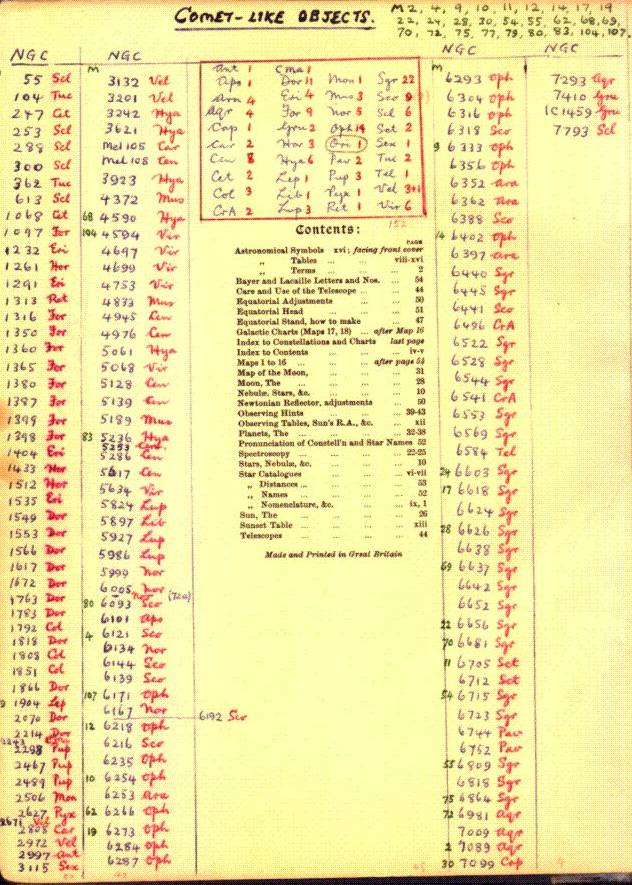 COMET-LIKE OBJECTS.
M 2, 4, 9, 10, 11, 12, 14, 17, 19
22, 24, 28, 30, 54, 55, 62, 68, 69,
70, 72, 75, 77, 79, 80, 83, 104, 107.
NGC
55 Scl
104 Tuc
247 Cet
253 Scl
288 Scl
300 Scl
362 Tuc
613 Scl
1068 Cet
1097 For
1232 Eri
1261 Hor
1291 Eri
1313 Ret
1316 For
1350 For
1360 For
1365 For
1380 For
1387 For
1399 For
1398 For
1404 Eri
1433 Hor
1512 Hor
1535 Eri
1549 Dor
1553 Dor
1566 Dor
1617 Dor
1672 Dor
1763 Dor
1783 Dor
1792 Col
1818 Dor
1808 Col
1851 Col
1866 Dor
1904 Lep
2070 Dor
2214 Dor
2243
2298 Pup
2467 Pup
2489 Pup
2506 Mon
2627 Pyx
2671 Vel
2808 Car
2972 Vel
2997 Ant
3115 Sex
NGC
M
3132 Vel
3201 Vel
3242 Hya
3621 Hya
Mel 105 Car
Mel 108 Cen
3923 Hya
4372 Mus
68 4590 Hya
104 4594 Vir
4697 Vir
4699 Vir
4753 Vir
4833 Mus
4945 Cen
4976 Cen
5061 Hya
5068 Vir
5128 Cen
5139 Cen
5189 Mus
83 5236 Hya
5253 Cen
5286 Cen
5617 Cen
5634 Vir
5824 Lup
5897 Lib
5927 Lup
5986 Lup
5999 Nor
6005 Nor
80 6093 Sco
6101 Aps
4 6121 Sco
6134 Nor
6144 Sco
6139 Sco
107 6171 Oph
6167 Nor
6192 Sco
12 6218 Oph
6216 Sco
6235 Oph
10 6254 Oph
6253 Ara
62 6266 Oph
19 6273 Oph
6284 Oph
6287 Oph
Ant 1 Cma 1
Aps 1 Dor 11 Mon 1 Sgr 22
Ara 4 Eri 4 Mus 3 Sco 9
Aqr 4 For 9 Nor 5 Scl 6
Cap 1 Gru 2 Oph 14 Sct 2
Car 2 Hor 3 Ori 1 Sex 1
Cen 8 Hya 6 Pav 2 Tuc 2
Cet 2 Lep 1 Pup 3 Tel 1
Col 3 Lib 1 Pyx 1 Vel 3+1
CrA 2 Lup 3 Ret 1 Vir 6
152
Contents:
PAGE
Astronomical Symbols xvi; facing front cover
„ Tables ... ... viii-xvi
„ Terms ... ... ... 2
Bayer and Lacaille Letters and Nos. ... 54
Care and Use of the Telescope ... ... 44
Equatorial Adjustments ... ... 50
Equatorial Head ... ... ... 51
Equatorial Stand, how to make ... 47
Galactic Charts (Maps 17, 18) ... after Map 16
Index to Constellations and Charts last page
Index to Contents ... ... iv-v
Maps 1 to 16 ... ... after page 54
Map of the Moon, ... ... ... 31
Moon, The ... ... ... 28
Nebulæ, Stars, &c. ... ... ... 10
Newtonian Reflector, adjustments ... 50
Observing Hints ... ... ... 39-43
Observing Tables, Sun's R.A., &c. ... xii
Planets, The ... ... ... 32-38
Pronunciation of Constell'n and Star Names 52
Spectroscopy ... ... ... 22-25
Stars, Nebulæ, &c. ... ... ... 10
Star Catalogues ... ... ... vi-vii
„ Distances ... ... ... 53
„ Names ... ... ... 52
„ Nomenclature, &c. ... ... ix, 1
Sun, The ... ... ... 26
Sunset Table ... ... ... xiii
Telescopes ... ... ... 44
Made and Printed in Great Britain
NGC
M
6293 Oph
6304 Oph
6316 Oph
6318 Sco
9 6333 Oph
6356 Oph
6352 Ara
6362 Ara
6388 Sco
14 6402 Oph
6397 Ara
6440 Sgr
6445 Sgr
6441 Sco
6496 CrA
6522 Sgr
6528 Sgr
6544 Sgr
6541 CrA
6553 Sgr
6569 Sgr
6584 Tel
24 6603 Sgr
17 6618 Sgr
6624 Sgr
28 6626 Sgr
6638 Sgr
69 6637 Sgr
6642 Sgr
6652 Sgr
22 6656 Sgr
70 6681 Sgr
11 6705 Sct
6712 Sct
54 6715 Sgr
6723 Sgr
6744 Pav
6752 Pav
55 6809 Sgr
6818 Sgr
75 6864 Sgr
72 6981 Aqr
7009 Aqr
2 7089 Aqr
30 7099 Cap
NGC
7293 Aqr
7410 Gru
IC1459 Gru
7793 Scl